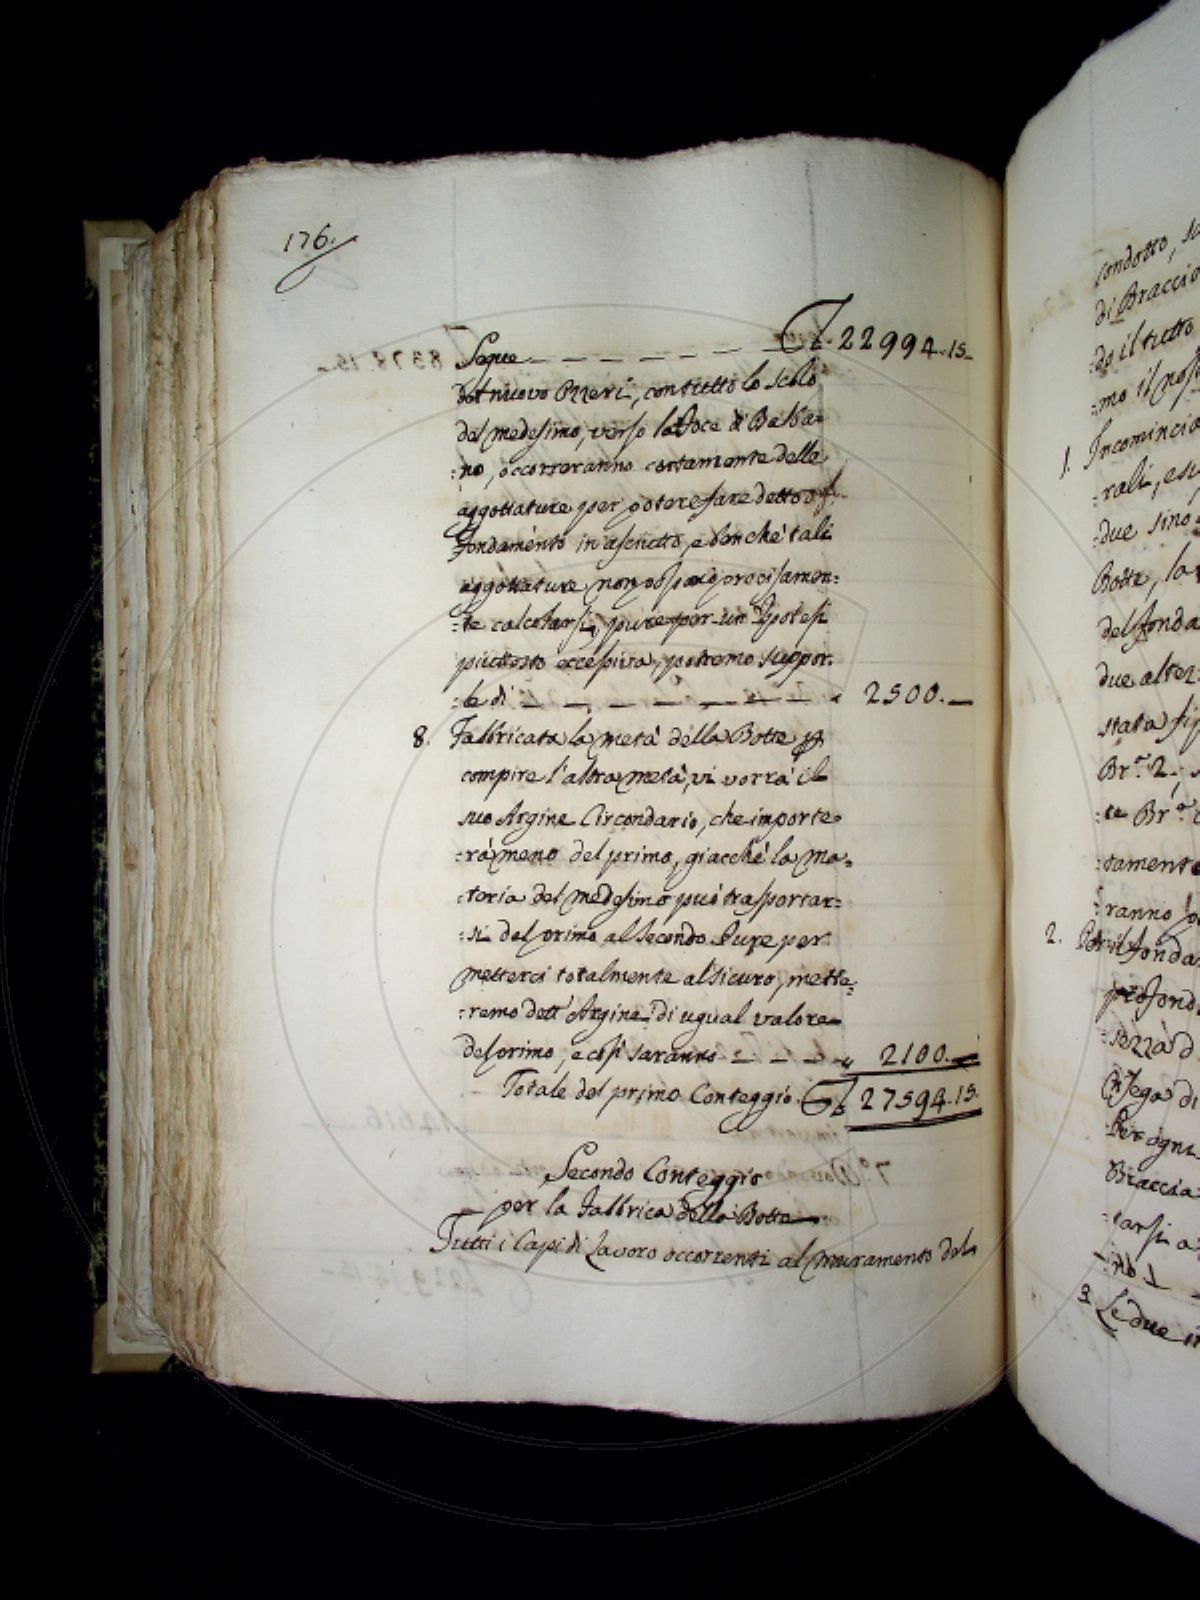 176.
Segue – – – – – – – £ 22994.15
del nuovo Ozzeri, con tutto lo scolo
del medesimo, verso la Foce di Balba:
:no, occorreranno certamente delle
aggottature per potere fare detto
fondamento in asciutto, e benchè tali
aggottature non possano precisamen:
:te calcolarsi, pure per un Ipotesi
piuttosto eccessiva, potremo suppor:
:le di – – – – – – – " 2500.—
8. Fabbricata la metà della Botte p
compire l'altra metà, vi vorrà il
suo Argine Circondario, che importe:
:rà meno del primo, giacchè la ma:
:teria del medesimo può trasportar:
:si del primo al secondo. Pure per
metterci totalmente al sicuro, mette:
:remo dett' Argine di ugual valore
del primo, e così saranno – – – – " 2100.—
Totale del primo Conteggio £ 27594.15.
Secondo Conteggio
per la Fabbrica della Botte
Tutti i Capi di Lavoro occorrenti al muramento del
condotto,
di Braccio
:do il tutto
:mo il
1. Incomincia
:rali,
:due sino
Botte, la
del fonda
due altez
stata
Br.a 2.
:te Br.a
:tamente
:ranno
2. Per il fonda
profond
:sezza d
Per ogni
Braccia
:tarsi a
3. Le due